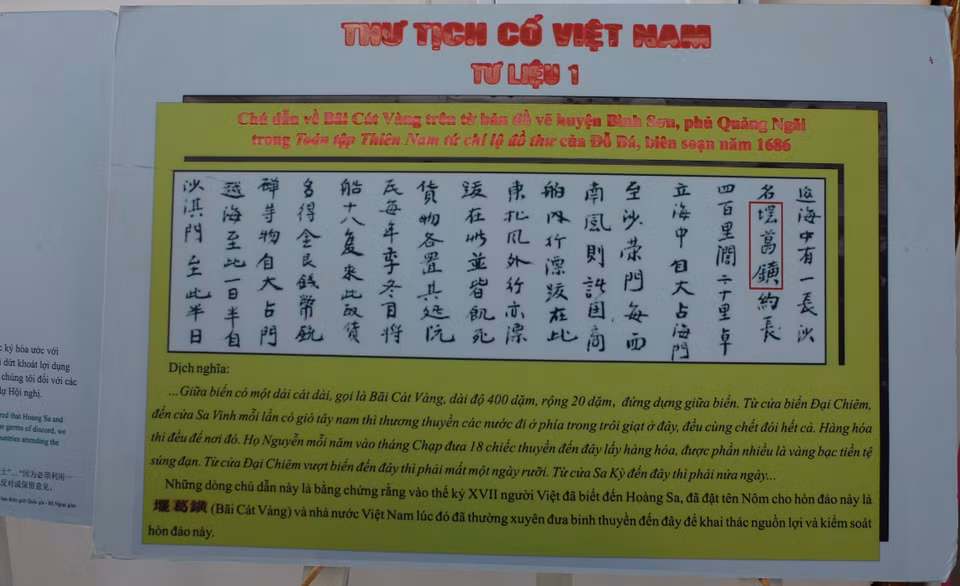 THƯ TỊCH CỔ VIỆT NAM
TƯ LIỆU 1
Chú dẫn về Bãi Cát Vàng trên tờ bản đồ vẽ huyện Bình Sơn, phủ Quảng Ngãi
trong Toàn tập Thiên Nam tứ chí lộ đồ thư của Đỗ Bá, biên soạn năm 1686
海中有一長沙
名葛鐄約長
四百里濶二十里卓
立海中自大占海門
至沙荣門每西
南風則諸国商
舶內行漂跋在此
東北風外行亦漂
跋在此並皆飢死
貨物各置其处阮
氏每年季冬月將
船十八隻來此取貨
多得金艮錢幣銃
碑等物自大占門
越海至此一日半自
沙淇門至此半日
Dịch nghĩa:
...Giữa biển có một dải cát dài, gọi là Bãi Cát Vàng, dài độ 400 dặm, rộng 20 dặm, đứng dựng giữa biển. Từ cửa biển Đại Chiêm,
đến cửa Sa Vinh mỗi lần có gió tây nam thì thương thuyền các nước đi ở phía trong trôi giạt ở đây, đều cùng chết đói hết cả. Hàng hóa
thì đều để nơi đó. Họ Nguyễn mỗi năm vào tháng Chạp đưa 18 chiếc thuyền đến đây lấy hàng hóa, được phần nhiều là vàng bạc tiền tệ
súng đạn. Từ cửa Đại Chiêm vượt biển đến đây thì phải mất một ngày rưỡi. Từ cửa Sa Kỳ đến đây thì phải nửa ngày...
Những dòng chú dẫn này là bằng chứng rằng vào thế kỷ XVII người Việt đã biết đến Hoàng Sa, đã đặt tên Nôm cho hòn đảo này là
葛鐄 (Bãi Cát Vàng) và nhà nước Việt Nam lúc đó đã thường xuyên đưa binh thuyền đến đây để khai thác nguồn lợi và kiểm soát
hòn đảo này.
ký hòa ước với
dứt khoát lợi dụng
chúng tôi đối với các
dự Hội nghị.
red that Hoang Sa and
germs of discord, we
untries attending the
士"..."因为必须利用一
反对或保留意见。